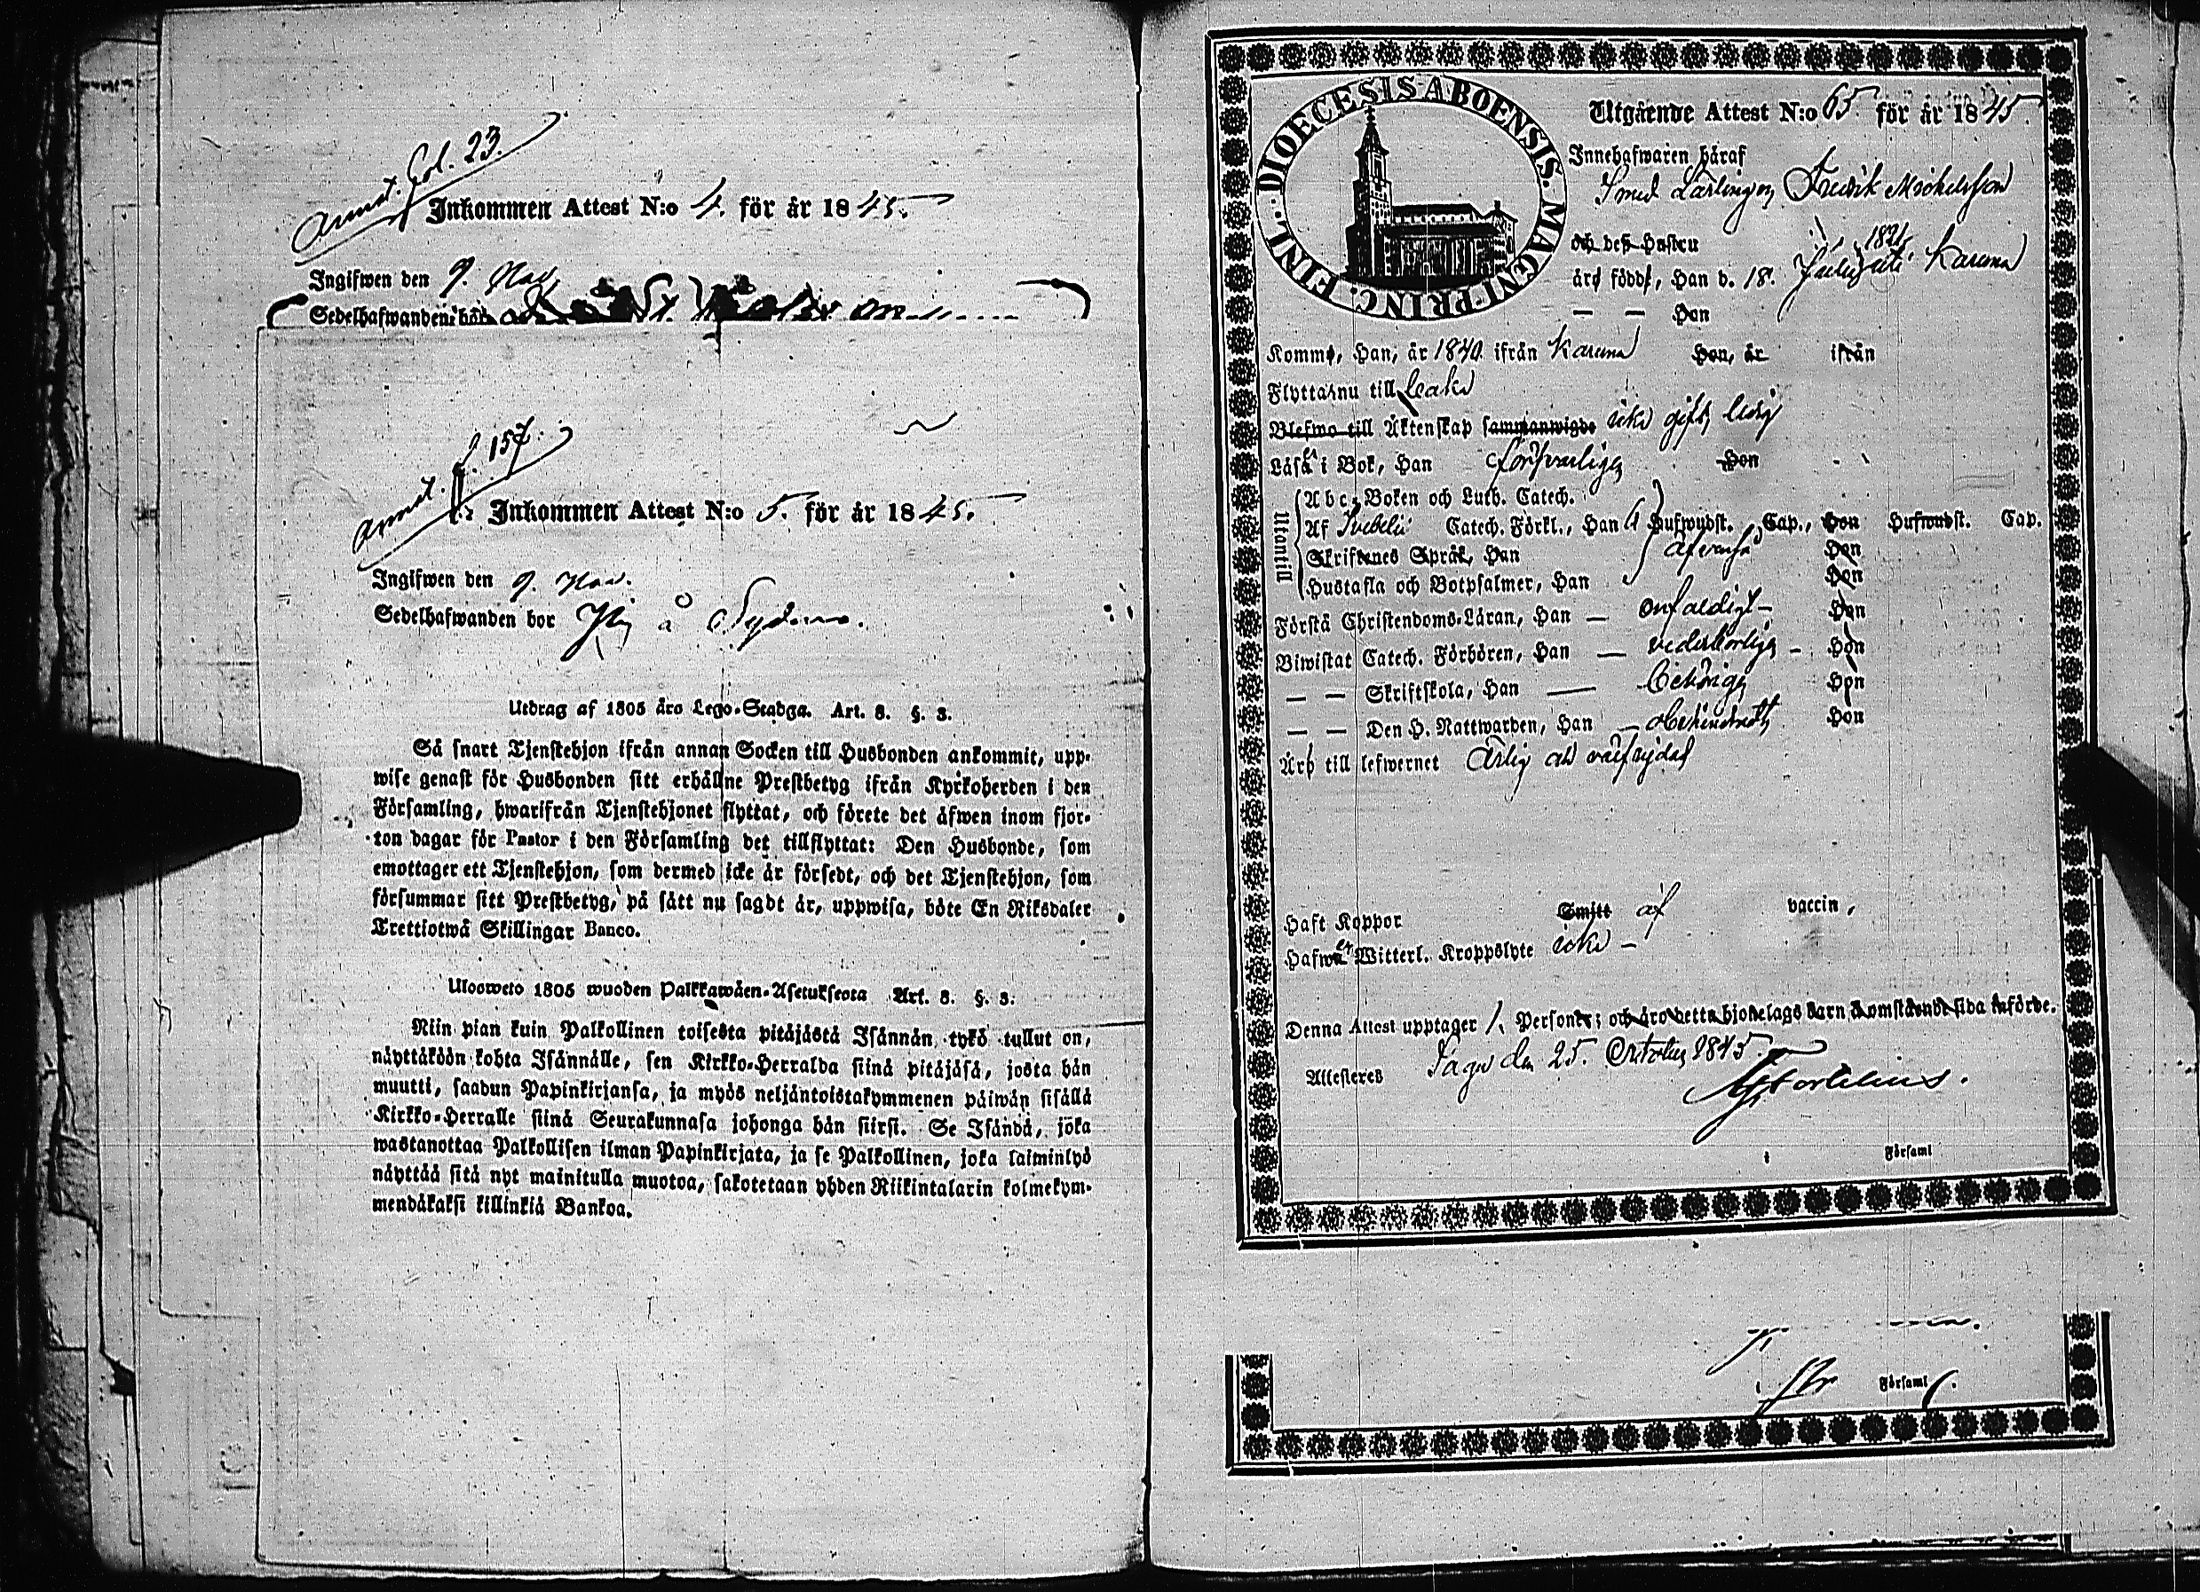 Annot. Fol. 23.
Inkommen Attest N:o 4. för år 1845.
Ingifwen den 9. Nov.
Sedelhafwanden bor
Annot. f. 157.
Inkommen Attest N:o 5. för år 1845.
Ingifwen den 9. Nov.
Sedelhafwanden bor å
Utdrag af 1805 års Lego-Stadga. Art. 8. §. 3.
Så snart Tjenstehjon ifrån annan Socken till Husbonden ankommit, upp-
wise genast för Husbonden sitt erhållne Prestbetyg ifrån Kyrkoherden i den
Församling, hwarifrån Tjenstehjonet flyttat, och förete det äfwen inom fjor-
ton dagar för Pastor i den Församling det tillflyttat: Den Husbonde, som
emottager ett Tjenstehjon, som dermed icke är försedt, och det Tjenstehjon, som
försummar sitt Prestbetyg, på sätt nu sagdt är, uppwisa, böte En Riksdaler
Trettiotwå Skillingar Banco.
Uloswets 1805 wuoden Palkkawäen-Asetuksesta Art. 8. §. 3.
Niin pian kuin Palkollinen toisesta pitäjästä Isännän tykö tullut on,
näyttäköön kohta Isännälle, sen Kirkko-Herralda siinä pitäjäsä, josta hän
muutti, saadun Papinkirjansa, ja myös neljäntoistakymmenen päiwän sisällä
Kirkko-Herralle siinä Seurakunnasa johonga hän siirsi. Se Isändä, joka
wastanottaa Palkollisen ilman Papinkirjata, ja se Palkollinen, joka laiminlyö
näyttää sitä nyt mainitulla muotoa, sakotetaan yhden Riikintalarin kolmekym-
mendäkaksi killinkiä Bankoa.
DIOECESIS ABOENSIS. MAGNI PRINC. FINL.
Utgående Attest N:o 65. för år 1845.
Innehafwaren häraf
Smed Lärlingen Fredrik Michelsson
och dess Hustru
1821
äro födde, Han d. 18. Karuna
— — Hon
Komme, Han, år 1840. ifrån Karuna Hon, år ifrån
Flytta nu till
Blefwo till Äktenskap sammanwigde icke gift, ledig
Läsa i Bok, Han försvarligen Hon
Utantill
Abc-Boken och Luth. Catech.
Af Svebelii Catech. Förkl., Han Hufwudst. Cap., Hon Hufwudst. Cap.
Skriftenes Språk, Han Hon
Hustafla och Botpsalmer, Han Hon
Förstå Christendoms-Läran, Han — enfaldigt — Hon
Biwistat Catech. Förhören, Han — vederbörligen — Hon
— — Skriftskola, Han — behörigen Hon
— — Den H. Nattwarden, Han — Hon
Äro till lefwernet Ärlig och välfrejdad
Haft Koppor Smitt af vaccin,
Hafwa Witterl. Kroppslyte icke —
Denna Attest upptager 1. Personer; och äro detta hjonelags barn å omstående sida införde.
Attesteres Sagu den 25. October 1845.
i Församl
Församl